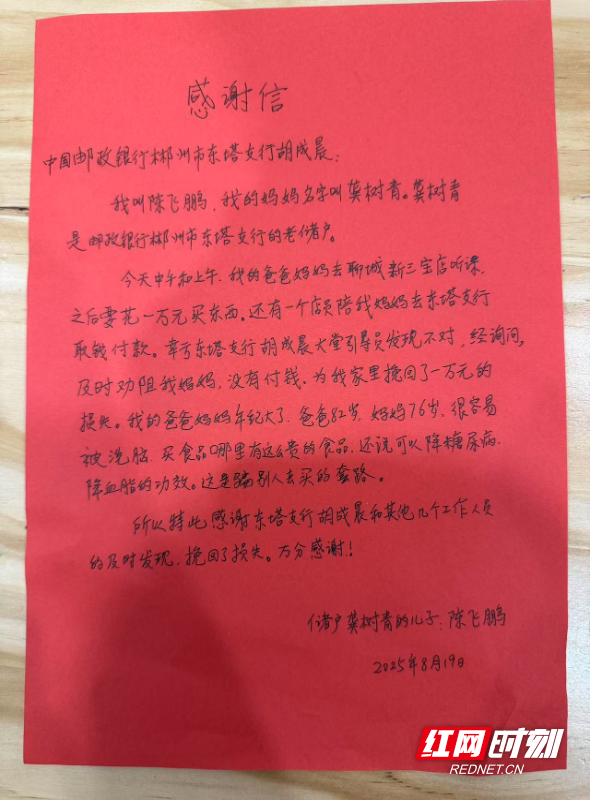 感谢信
中国邮政银行郴州市东塔支行胡成晨:
我叫陈飞鹏,我的妈妈名字叫龚树青。龚树青
是邮政银行郴州市东塔支行的老储户。
今天中午和上午,我的爸爸妈妈去聊城新三宝店听课,
之后要花一万元买东西。还有一个店员陪我妈妈去东塔支行
取钱付款。幸亏东塔支行胡成晨大堂引导员发现不对,经询问,
及时劝阻我妈妈,没有付钱,为我家里挽回了一万元的
损失。我的爸爸妈妈年纪大了,爸爸82岁,妈妈76岁,很容易
被洗脑,买食品哪里有这么贵的食品,还说可以降糖尿病,
降血脂的功效。这是骗别人去买的套路。
所以特此感谢东塔支行胡成晨和其他几个工作人员
的及时发现,挽回了损失。万分感谢!
储户龚树青的儿子:陈飞鹏
2025年8月19日
红网时刻
REDNET.CN